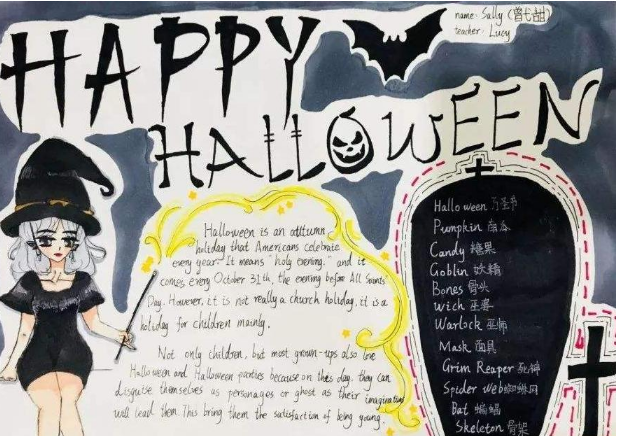 HAPPY
HALLOWEEN
name: Sally (曾弋甜)
teacher: Lucy
Halloween is an autumn
holiday that Americans celebrate
every year. It means "holy evening," and it
comes every October 31th, the evening before All Saints'
Day. However, it is not really a church holiday, it is a
holiday for children mainly.
Not only children, but most grown-ups also love
Halloween and Halloween parties because on this day, they can
disguise themselves as personages or ghost as their imaginations
will lead them. This bring them the satisfaction of being young.
Halloween 万圣节
Pumpkin 南瓜
Candy 糖果
Goblin 妖精
Bones 骨头
wich 巫婆
Warlock 巫师
Mask 面具
Grim Reaper 死神
Spider web 蜘蛛网
Bat 蝙蝠
Skeleton 骨架